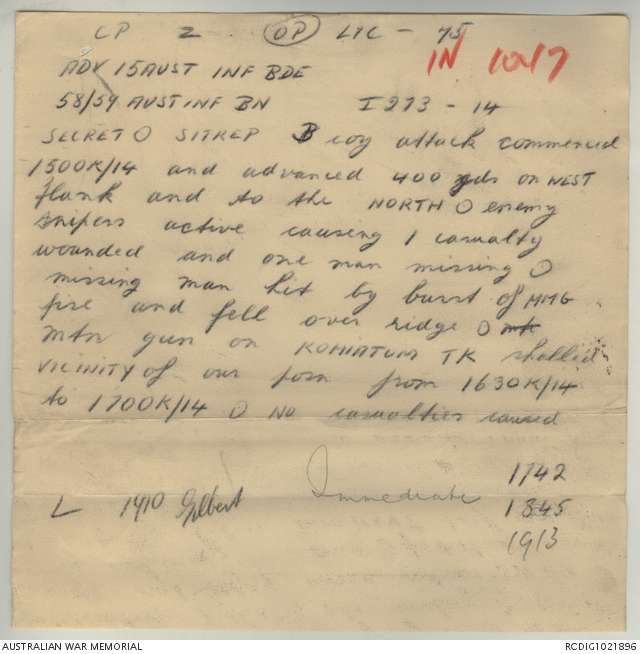 CP 2 OP LTC - 75
IN 1017
ADV 15 AUST INF BDE
58/59 AUST INF BN I273 - 14
SECRET O SITREP B coy attack commenced
1500K/14 and advanced 400 yds on WEST
flank and to the NORTH O enemy
snipers active causing 1 casualty
wounded and one man missing O
missing man hit by burst of MMG
fire and fell over ridge O
mtn gun on KOMIATUM TK shelled
VICINITY of our posn from 1630K/14
to 1700K/14 O No casualties caused
L 1910 Gilbert Immediate 1742
1845
1913
AUSTRALIAN WAR MEMORIAL RCDIG1021896